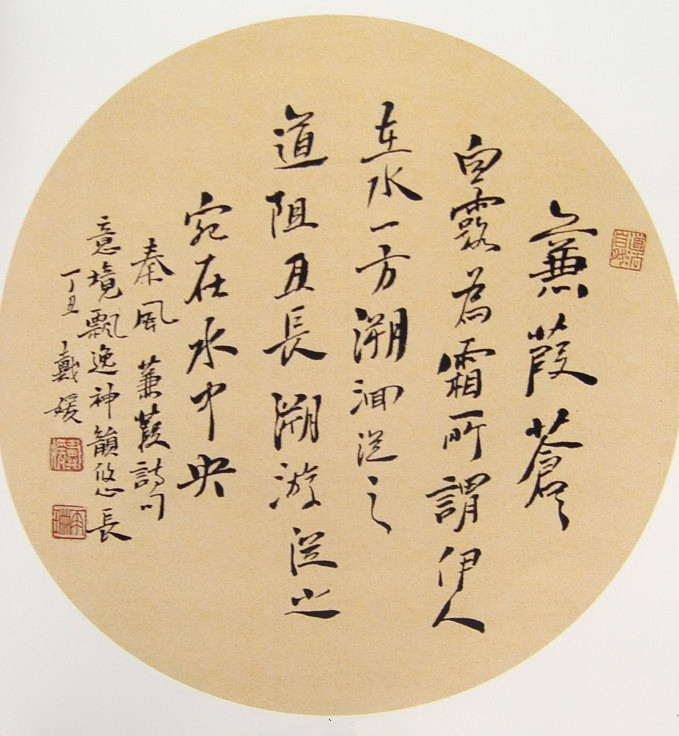 蒹葭蒼々
白露為霜所謂伊人
在水一方溯洄從之
道阻且長溯游從之
宛在水中央
秦風蒹葭詩句
意境飄逸神韻悠長
丁丑戴媛